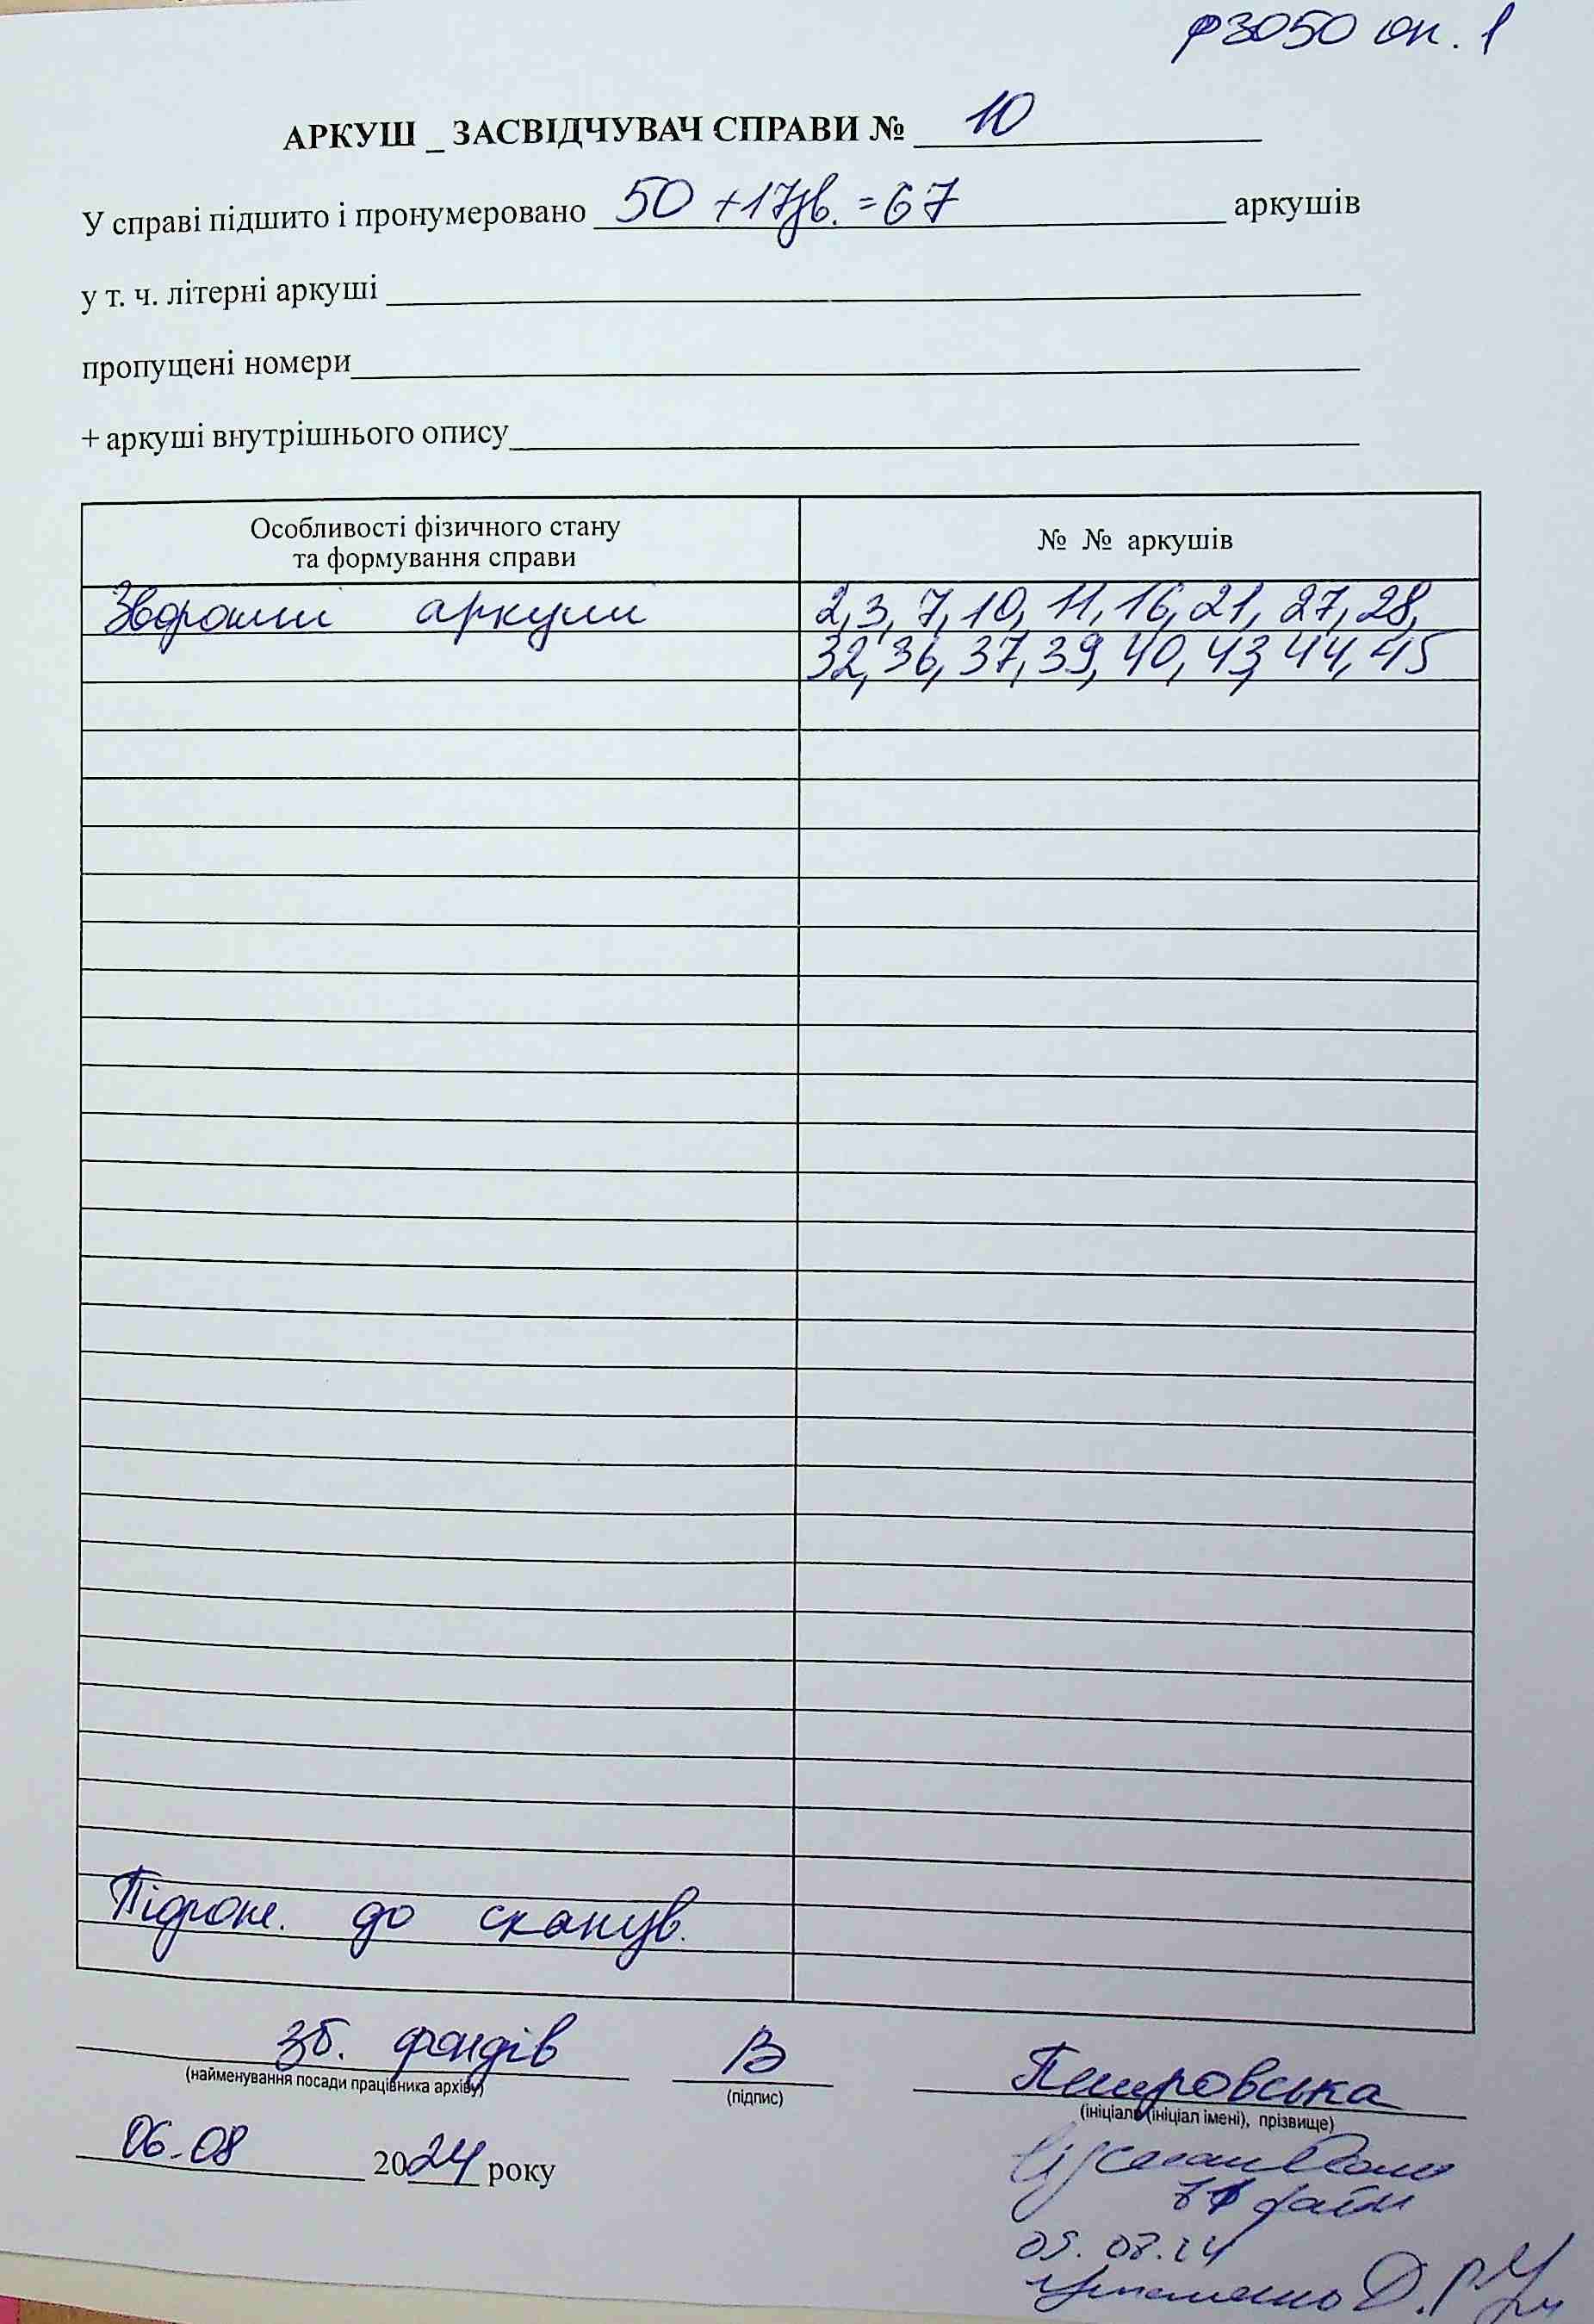 ф3050 оп. 1
АРКУШ _ ЗАСВІДЧУВАЧ СПРАВИ № 10
У справі підшито і пронумеровано 50 + 17зв. = 67 аркушів
у т. ч. літерні аркуші
пропущені номери
+ аркуші внутрішнього опису
Особливості фізичного стану та формування справи
№ № аркушів
Зворотні аркуші 2, 3, 7, 10, 11, 16, 21, 27, 28,
32, 36, 37, 39, 40, 43, 44, 45
Підгот. до сканув.
зб. фондів В Петровська
(найменування посади працівника архіву) (підпис) (ініціали (ініціал імені), прізвище)
06.08 2024 року
файли
09.08.24